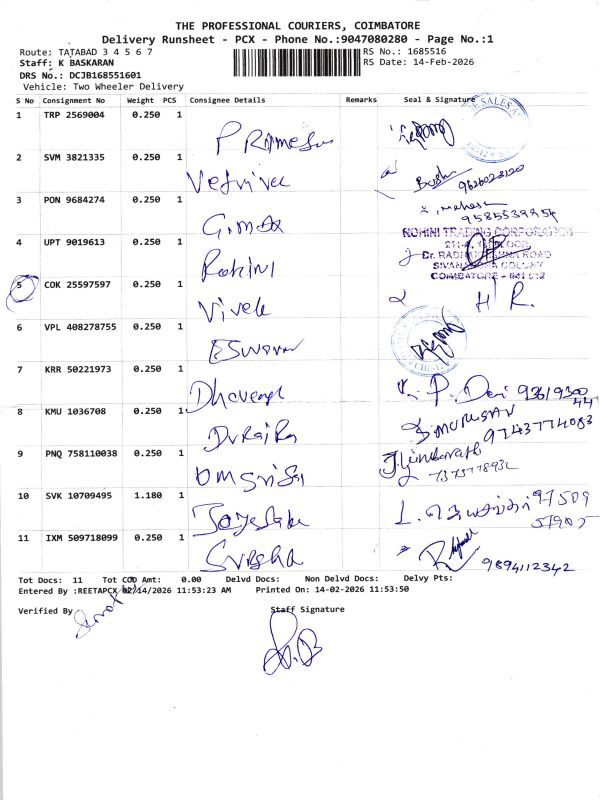 THE PROFESSIONAL COURIERS, COIMBATORE
Delivery Runsheet - PCX - Phone No.:9047080280 - Page No.:1
Route: TATABAD 3 4 5 6 7 RS No.: 1685516
Staff: K BASKARAN RS Date: 14-Feb-2026
DRS No.: DCJB168551601
Vehicle: Two Wheeler Delivery
S No Consignment No Weight PCS Consignee Details Remarks Seal & Signature
1 TRP 2569004 0.250 1 P Ramesh
2 SVM 3821335 0.250 1 Vetrivel
9626023120
3 PON 9684274 0.250 1
Mahesh
9585539954
4 UPT 9019613 0.250 1 Rohini
ROHINI TRADING CORPORATION
SIVANANDA COLONY
COIMBATORE - 641 012
5 COK 25597597 0.250 1 Vivek H R.
6 VPL 408278755 0.250 1 ESWARAN
7 KRR 50221973 0.250 1
P. Devi
8 KMU 1036708 0.250 1 Durai Raj
S MURUGAN 9743774083
9 PNQ 758110038 0.250 1 Om Sri Sai
10 SVK 10709495 1.180 1
97509
11 IXM 509718099 0.250 1
9894112342
Tot Docs: 11 Tot COD Amt: 0.00 Delvd Docs: Non Delvd Docs: Delvy Pts:
Entered By :REETAPCX 02/14/2026 11:53:23 AM Printed On: 14-02-2026 11:53:50
Verified By Staff Signature